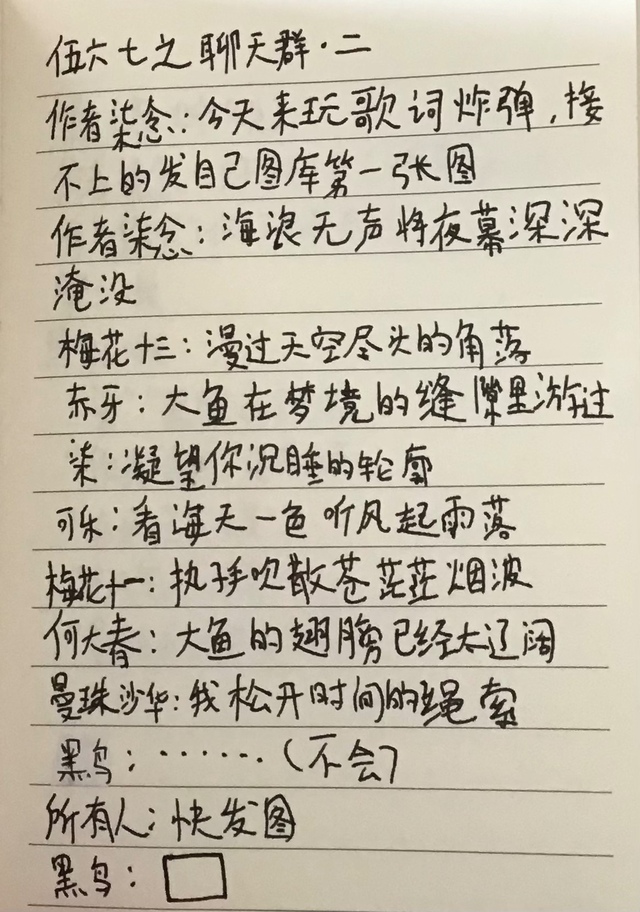 伍六七之聊天群·二
作者柒念：今天来玩歌词炸弹，接
不上的发自己图库第一张图
作者柒念：海浪无声将夜幕深深
淹没
梅花十三：漫过天空尽头的角落
赤牙：大鱼在梦境的缝隙里游过
柒：凝望你沉睡的轮廓
可乐：看海天一色 听风起雨落
梅花十一：执子手吹散苍茫茫烟波
何大春：大鱼的翅膀已经太辽阔
曼珠沙华：我松开时间的绳索
黑鸟：……（不会）
所有人：快发图
黑鸟：